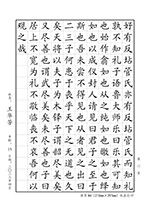 好有反坫管氏亦有反坫管氏而知礼
孰不知礼子语鲁大师乐曰乐其可知
也始作翕如也从之纯如也皦如也绎
如也以成仪封人请见曰君子之至于
斯也吾未尝不得见也从者见之出曰
二三子何患于丧乎天下之无道也久
矣天将以夫子为木铎子谓韶尽美矣
又尽善也谓武尽美矣未尽善也子曰
居上不宽为礼不敬临丧不哀吾何以
观之哉